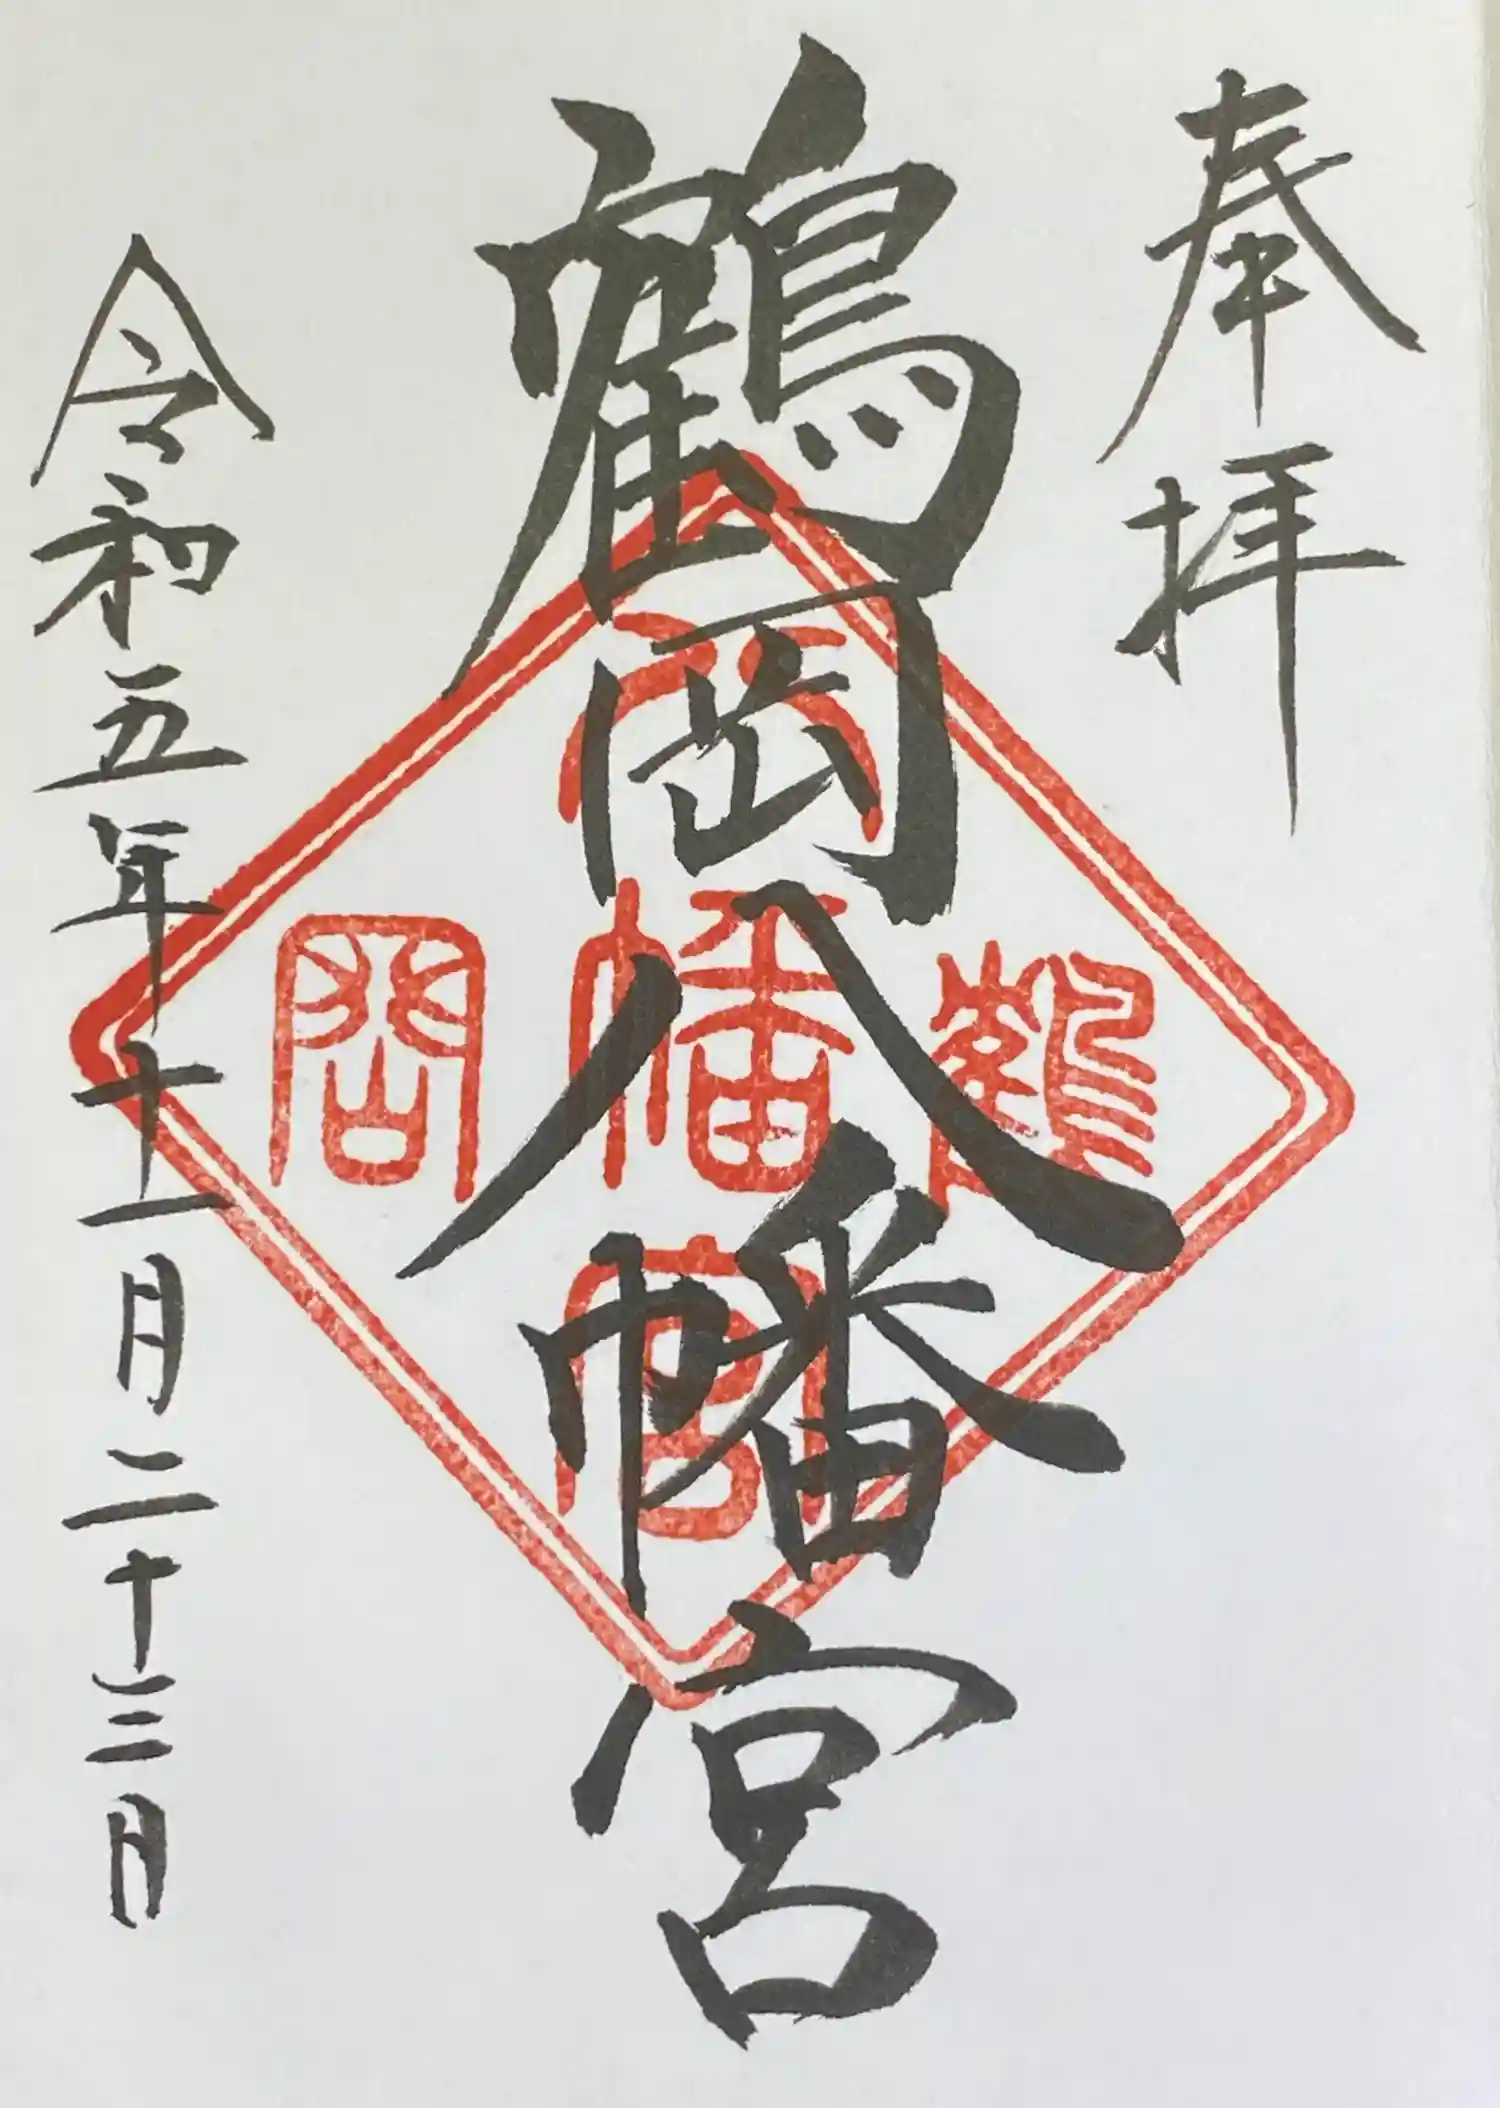 奉拝
鶴岡八幡宮
鶴岡八幡宮
令和五年十一月二十三日